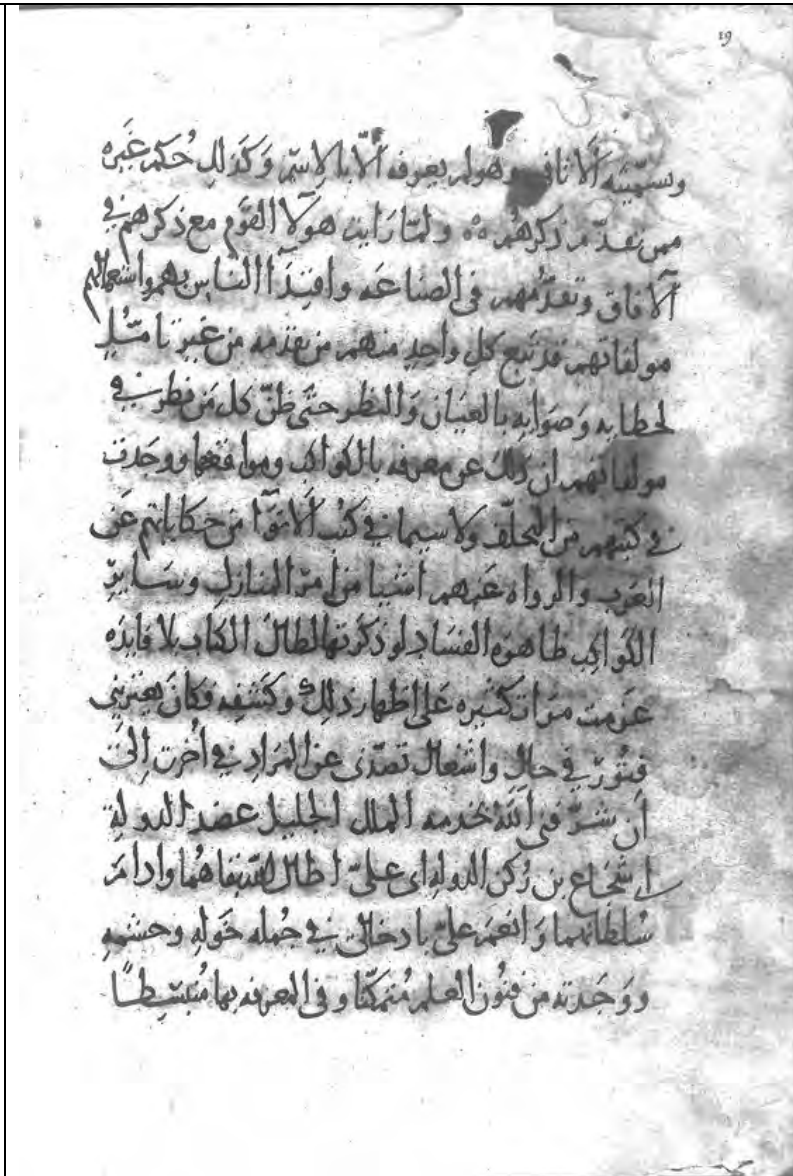 19
وتسميته الاثافي وهو لم يعرفه الّا بالاسم وكذلك حُكم غيره
ممن تقدّم ذكرهُم ولمّا رايت هولا القوم مع ذكرهم في
الآفاق وتقدّمهم في الصناعه واقتدآ الناس بهم واستعمالهم
مولفاتهم قد تبع كل واحدٍ منهم من تقدمه من غير تامّلٍ
لخطايه وصَوابه بالعيان والنظر حتى ظنّ كل من نظر في
مولفاتهم ان ذلك عن معرفه بالكواكب ومواقعها ووجدت
في كتبهم من التخلّف ولاسيما في كتب الانوآ من حكاياتهم عن
العرب والرواه عنهم اشيا من امر المنازل وسَايرِ
الكواكب ظاهره الفساد لو ذكرتها لطال الكتاب بلا فايده
عزمت مرات كثيره على اظهار ذلك وكشفه فكان يعتريني
فتُورٌ في حالٍ واشغال تصدّني عن المراد في أُخرى الى
أن شرّفني الله بخدمه الملك الجليل عضد الدولة
ابي شجاع بن رُكن الدوله ابي عليّ اطال الله بقاهُما وادام
سُلطانهما وانعم عليّ بادخالي في جُمله خَوَلِهِ وحشمه
ووجدته من فنُون العلم مُتمكّنًا وفي المعرفه بها مُنبسّطًا